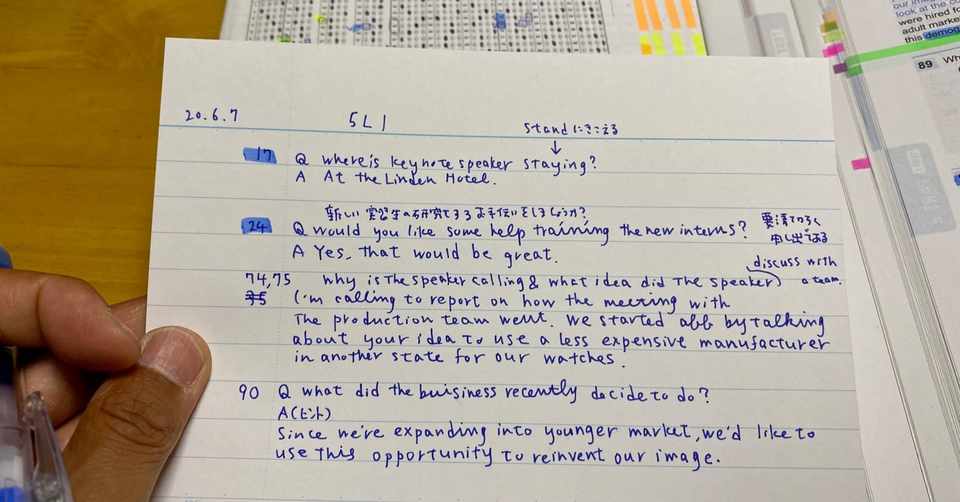 our im
look at the cu
were hired fo
adult marke
this demog
89 Wh
20.6.7 5L1 Standにきこえる
↓
17 Q where is keynote speaker staying?
A At the Linden Hotel.
新しい 実習生の研究でするお手伝いをしましょうか?
24 Q would you like some help training the new interns?
A Yes, that would be great.
要請でなく
申し出である
discuss with
a team.
74,75 why is The speaker calling & what idea did The speaker
35 I'm calling to report on how the meeting with
The production team went. we started off by talking
about your idea to use a less expensive manufacturer
in another state for our watches.
90 Q what did the buisiness recently decide to do?
A(ヒント)
Since we're expanding into younger market, we'd like to
use This opportunity to reinvent our image.